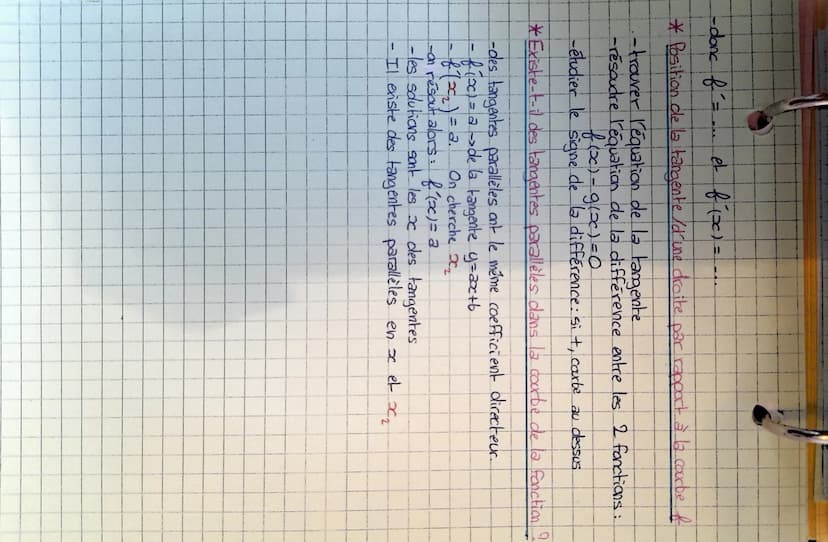 -donc f' = ... et f'(x) = ...
* Position de la tangente/d'une droite par rapport à la courbe f
- trouver l'équation de la tangente
- résoudre l'équation de la différence entre les 2 fonctions :
f(x) - g(x) = 0
- étudier le signe de la différence : si +, courbe au dessus
* Existe-t-il des tangentes parallèles dans la courbe de la fonction ?
- des tangentes parallèles ont le même coefficient directeur.
- f'(x) = a → de la tangente y = ax + b
- f'(x₂) = a. On cherche x₂
- on résout alors : f'(x) = a
- les solutions sont les x des tangentes
- Il existe des tangentes parallèles en x et x₂